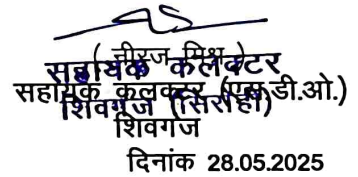 ( नीरज मिश्र )
सहायक कलक्टर
सहायक कलक्टर (एस.डी.ओ.)
शिवगंज (सिरोही)
शिवगंज
दिनांक 28.05.2025